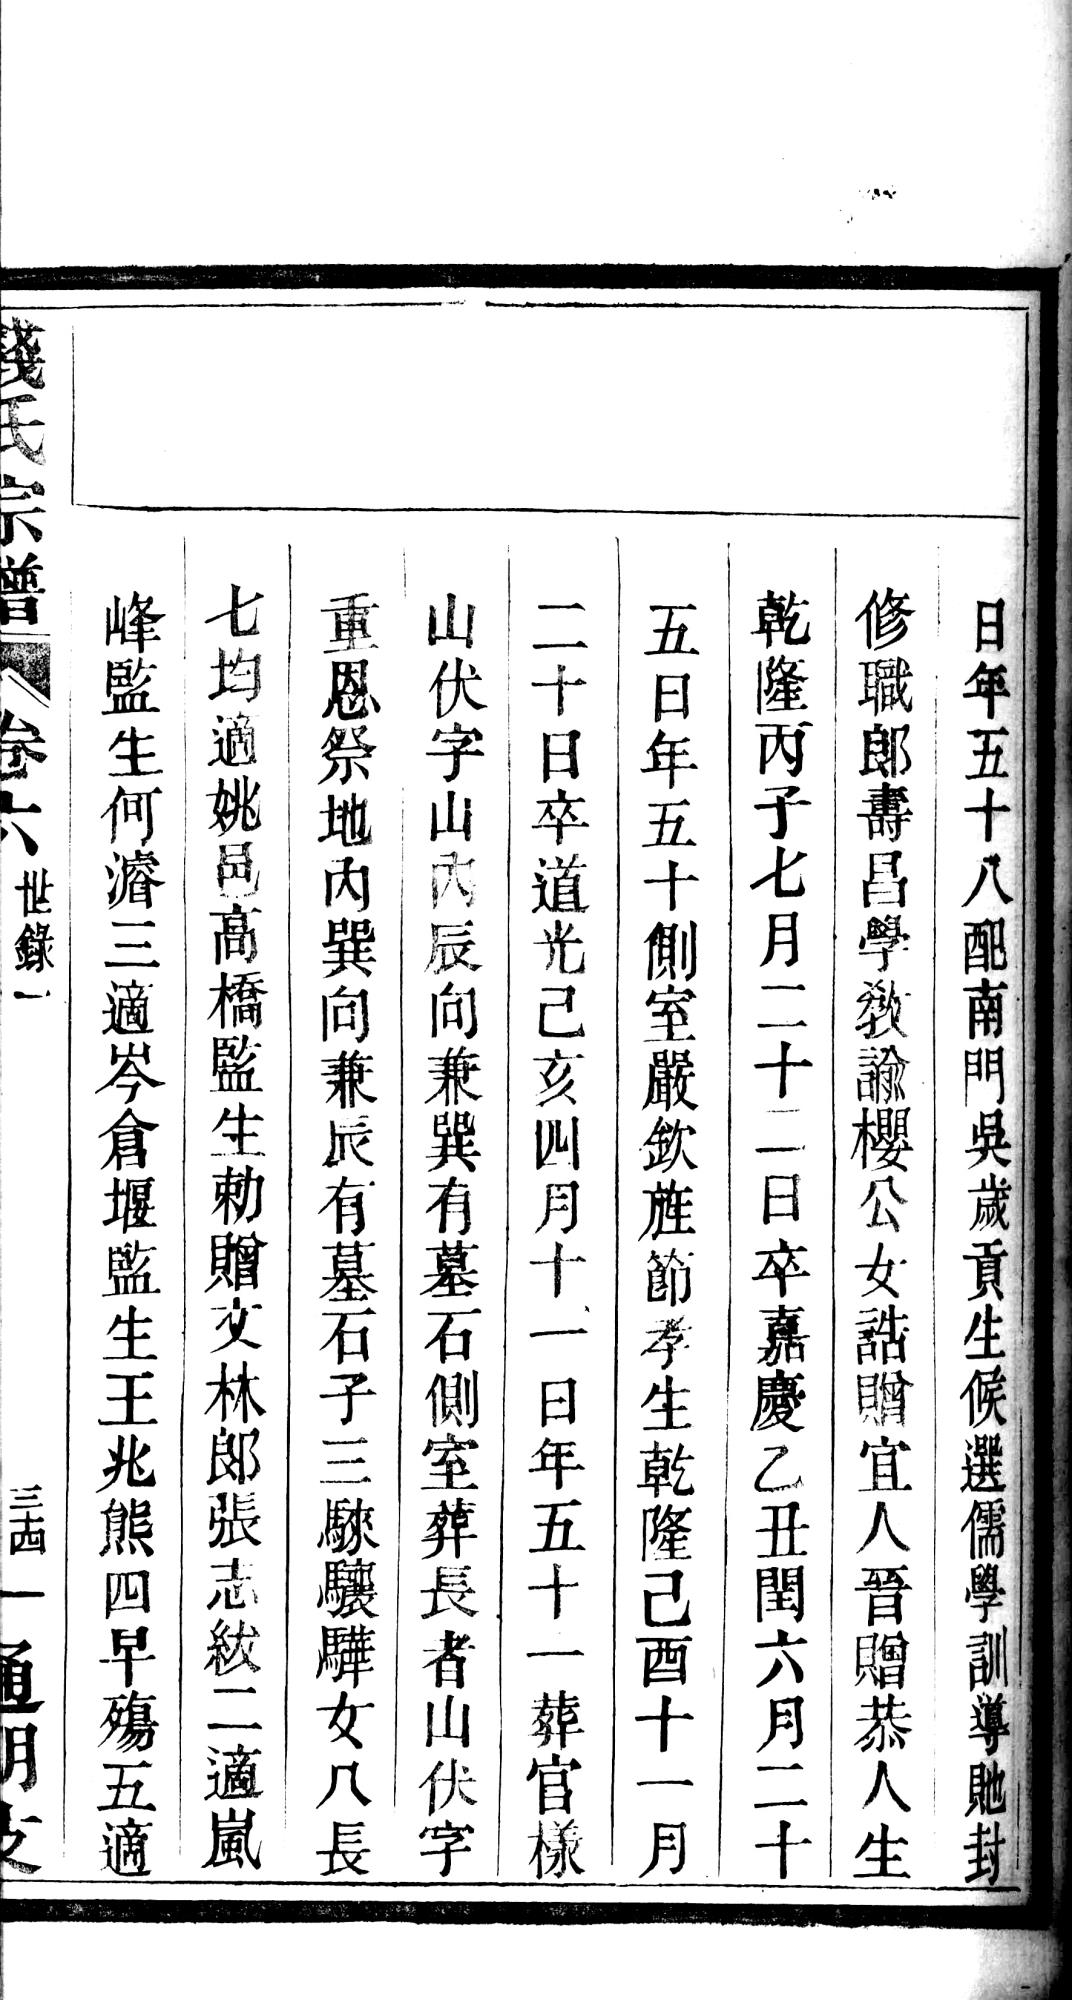 日年五十八配南門吳歲貢生候選儒學訓導貤封
修職郎壽昌學教諭櫻公女誥贈宜人晉贈恭人生
乾隆丙子七月二十二日卒嘉慶乙丑閏六月二十
五日年五十側室嚴欽旌節孝生乾隆己酉十一月
二十日卒道光己亥四月十一日年五十一葬官樣
山伏字山內辰向兼巽有墓石側室葬長者山伏字
重恩祭地內巽向兼辰有墓石子三騋驤驊女八長
七均適姚邑高橋監生勅贈文林郎張志紱二適嵐
峰監生何濬三適岑倉堰監生王兆熊四早殤五適
錢氏宗譜 卷六 世錄一 三十四 通明支